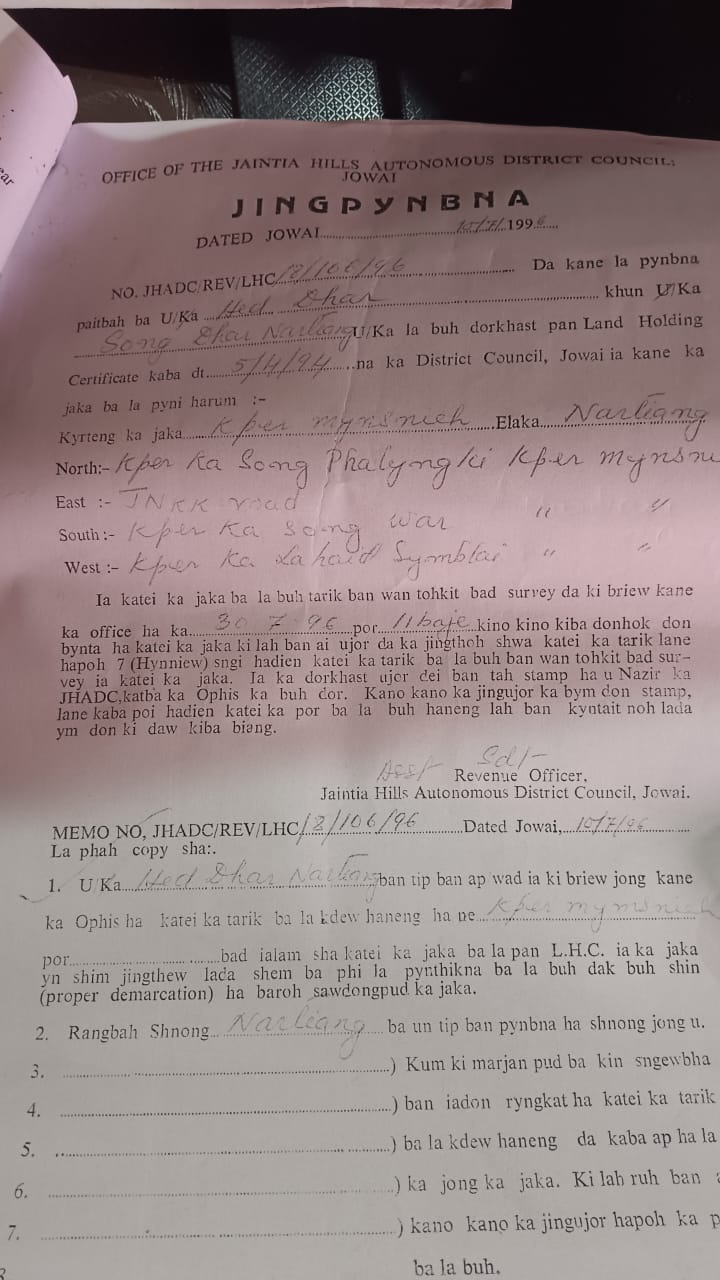 ear
OFFICE OF THE JAINTIA HILLS AUTONOMOUS DISTRICT COUNCIL;
JOWAI
JINGPYNBNA
DATED JOWAI 10/7/ 1996
NO. JHADC/REV/LHC/8/106/96 Da kane la pynbna
paitbah ba U/Ka Hed Dhar khun U/Ka
Song Dhar Nartiang U/Ka la buh dorkhast pan Land Holding
Certificate kaba dt. 5/4/94 na ka District Council, Jowai ia kane ka
jaka ba la pyni harum :-
Kyrteng ka jaka Kper mynsnich Elaka Nartiang
North:- Kper Ka Song Phalyngki Kper mynsni
East :- JNKK road
South :- Kper Ka Song war " "
West :- Kper Ka Lahaid Symblai " "
Ia katei ka jaka ba la buh tarik ban wan tohkit bad survey da ki briew kane
ka office ha ka 30 7 96 por 11 baje kino kino kiba donhok don
bynta ha katei ka jaka ki lah ban ai ujor da ka jingthoh shwa katei ka tarik lane
hapoh 7 (Hynniew) sngi hadien katei ka tarik ba la buh ban wan tohkit bad sur-
vey ia katei ka jaka. Ia ka dorkhast ujor dei ban tah stamp ha u Nazir ka
JHADC,katba ka Ophis ka buh dor. Kano kano ka jingujor ka bym don stamp,
lane kaba poi hadien katei ka por ba la buh haneng lah ban kyntait noh lada
ym don ki daw kiba biang.
Sd/-
Asst Revenue Officer,
Jaintia Hills Autonomous District Council, Jowai.
MEMO NO, JHADC/REV/LHC/8/106/96 Dated Jowai, 10/7/96
La phah copy sha:.
1. U/Ka Hed Dhar Nartiang ban tip ban ap wad ia ki briew jong kane
ka Ophis ha katei ka tarik ba la kdew haneng ha ne Kper mymsnich
por bad ialam sha katei ka jaka ba la pan L.H.C. ia ka jaka
yn shim jingthew lada shem ba phi la pynthikna ba la buh dak buh shin
(proper demarcation) ha baroh sawdongpud ka jaka.
2. Rangbah Shnong Nartiang ba un tip ban pynbna ha shnong jong u.
3. ) Kum ki marjan pud ba kin sngewbha
4. ) ban iadon ryngkat ha katei ka tarik
5. ) ba la kdew haneng da kaba ap ha la
6. ) ka jong ka jaka. Ki lah ruh ban
7. ) kano kano ka jingujor hapoh ka p
ba la buh.